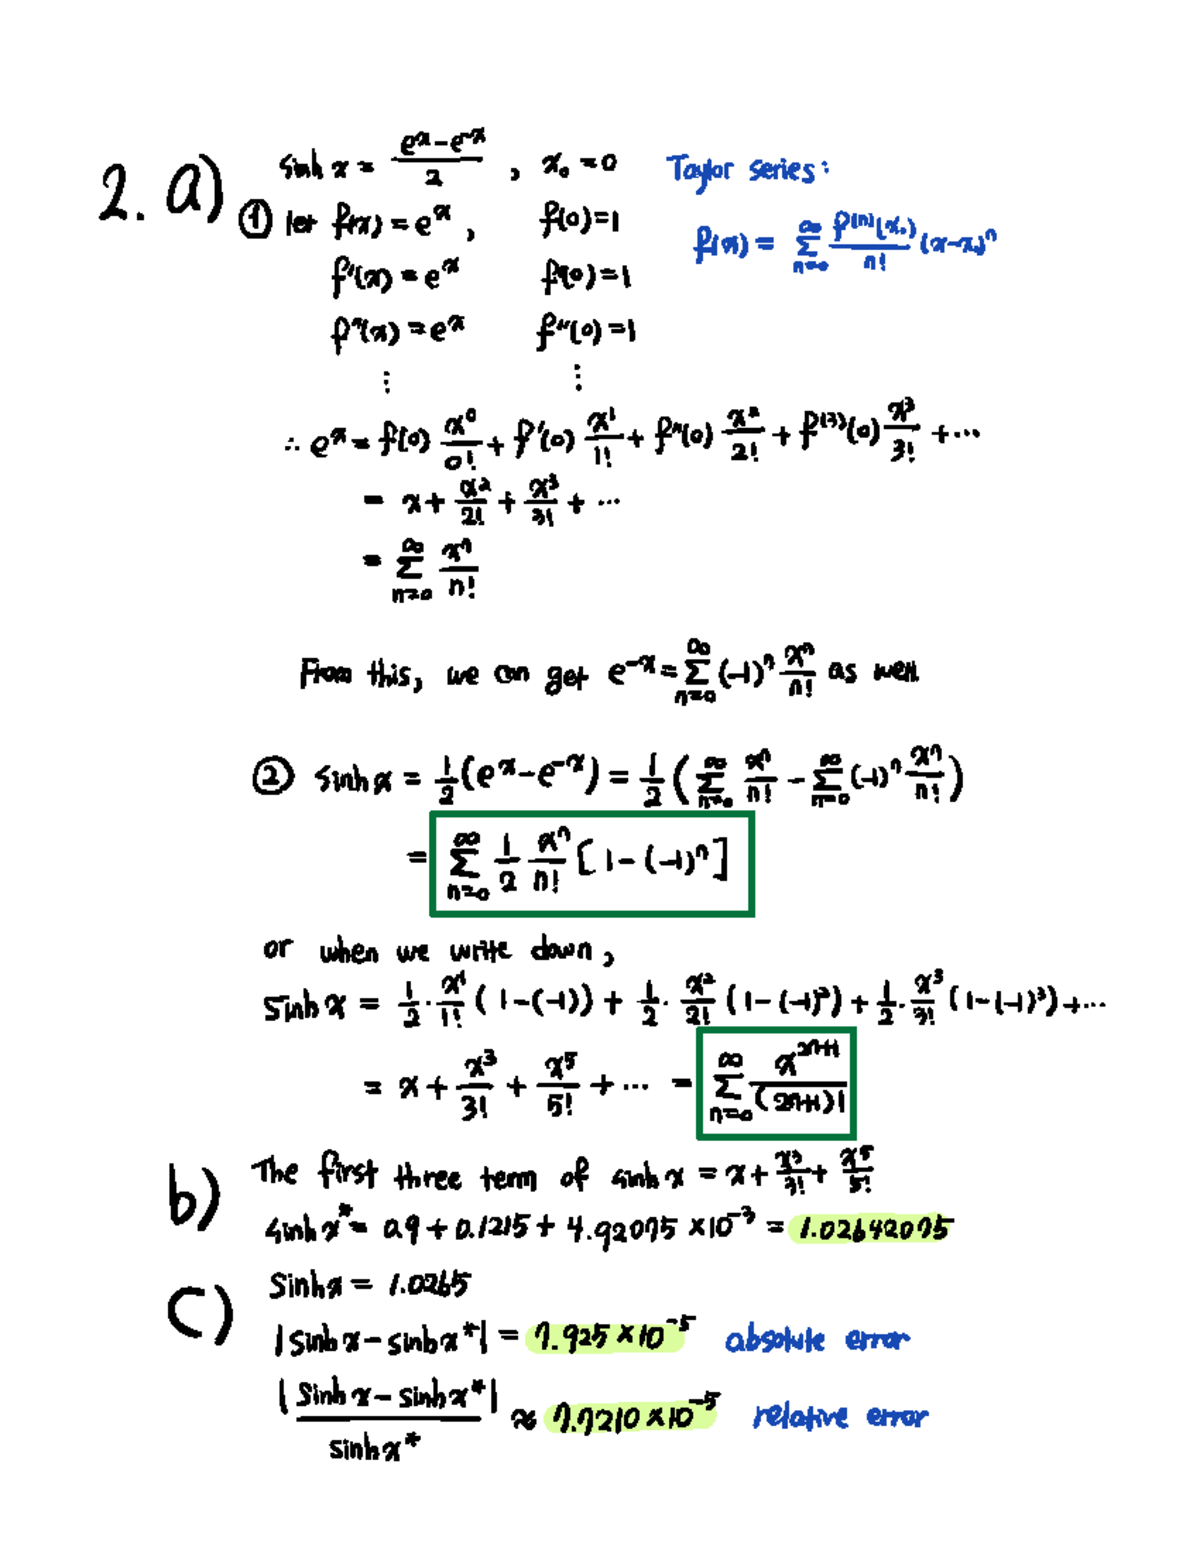 2. a) sinh x = (e^x − e^-x)/2 , x₀ = 0 Taylor series:
① let f(x) = e^x , f(0) = 1 f(x) = Σ_{n=0}^{∞} f^(n)(x₀)/n! (x−x₀)^n
f'(x) = e^x f'(0) = 1
f''(x) = e^x f''(0) = 1
⋮ ⋮
∴ e^x = f(0) x^0/0! + f'(0) x^1/1! + f''(0) x^2/2! + f^(3)(0) x^3/3! + ⋯
= x + x^2/2! + x^3/3! + ⋯
= Σ_{n=0}^{∞} x^n/n!
From this, we can get e^-x = Σ_{n=0}^{∞} (−1)^n x^n/n! as well
② sinh x = 1/2 (e^x − e^-x) = 1/2 ( Σ_{n=0}^{∞} x^n/n! − Σ_{n=0}^{∞} (−1)^n x^n/n! )
= Σ_{n=0}^{∞} 1/2 x^n/n! [ 1 − (−1)^n ]
or when we write down ,
Sinh x = 1/2 · x^1/1! ( 1−(−1)) + 1/2 · x^2/2! (1−(−1)^2) + 1/2 · x^3/3! (1−(−1)^3) + ⋯
= x + x^3/3! + x^5/5! + ⋯ = Σ_{n=0}^{∞} x^{2n+1}/(2n+1)!
b) The first three term of sinh x = x + x^3/3! + x^5/5!
sinh x* = 0.9 + 0.1215 + 4.92075 × 10^-3 = 1.02642075
c) Sinh x = 1.0265
| Sinh x − sinh x* | = 7.925 × 10^-5 absolute error
| Sinh x − sinh x* | / sinh x* ≈ 7.7210 × 10^-5 relative error